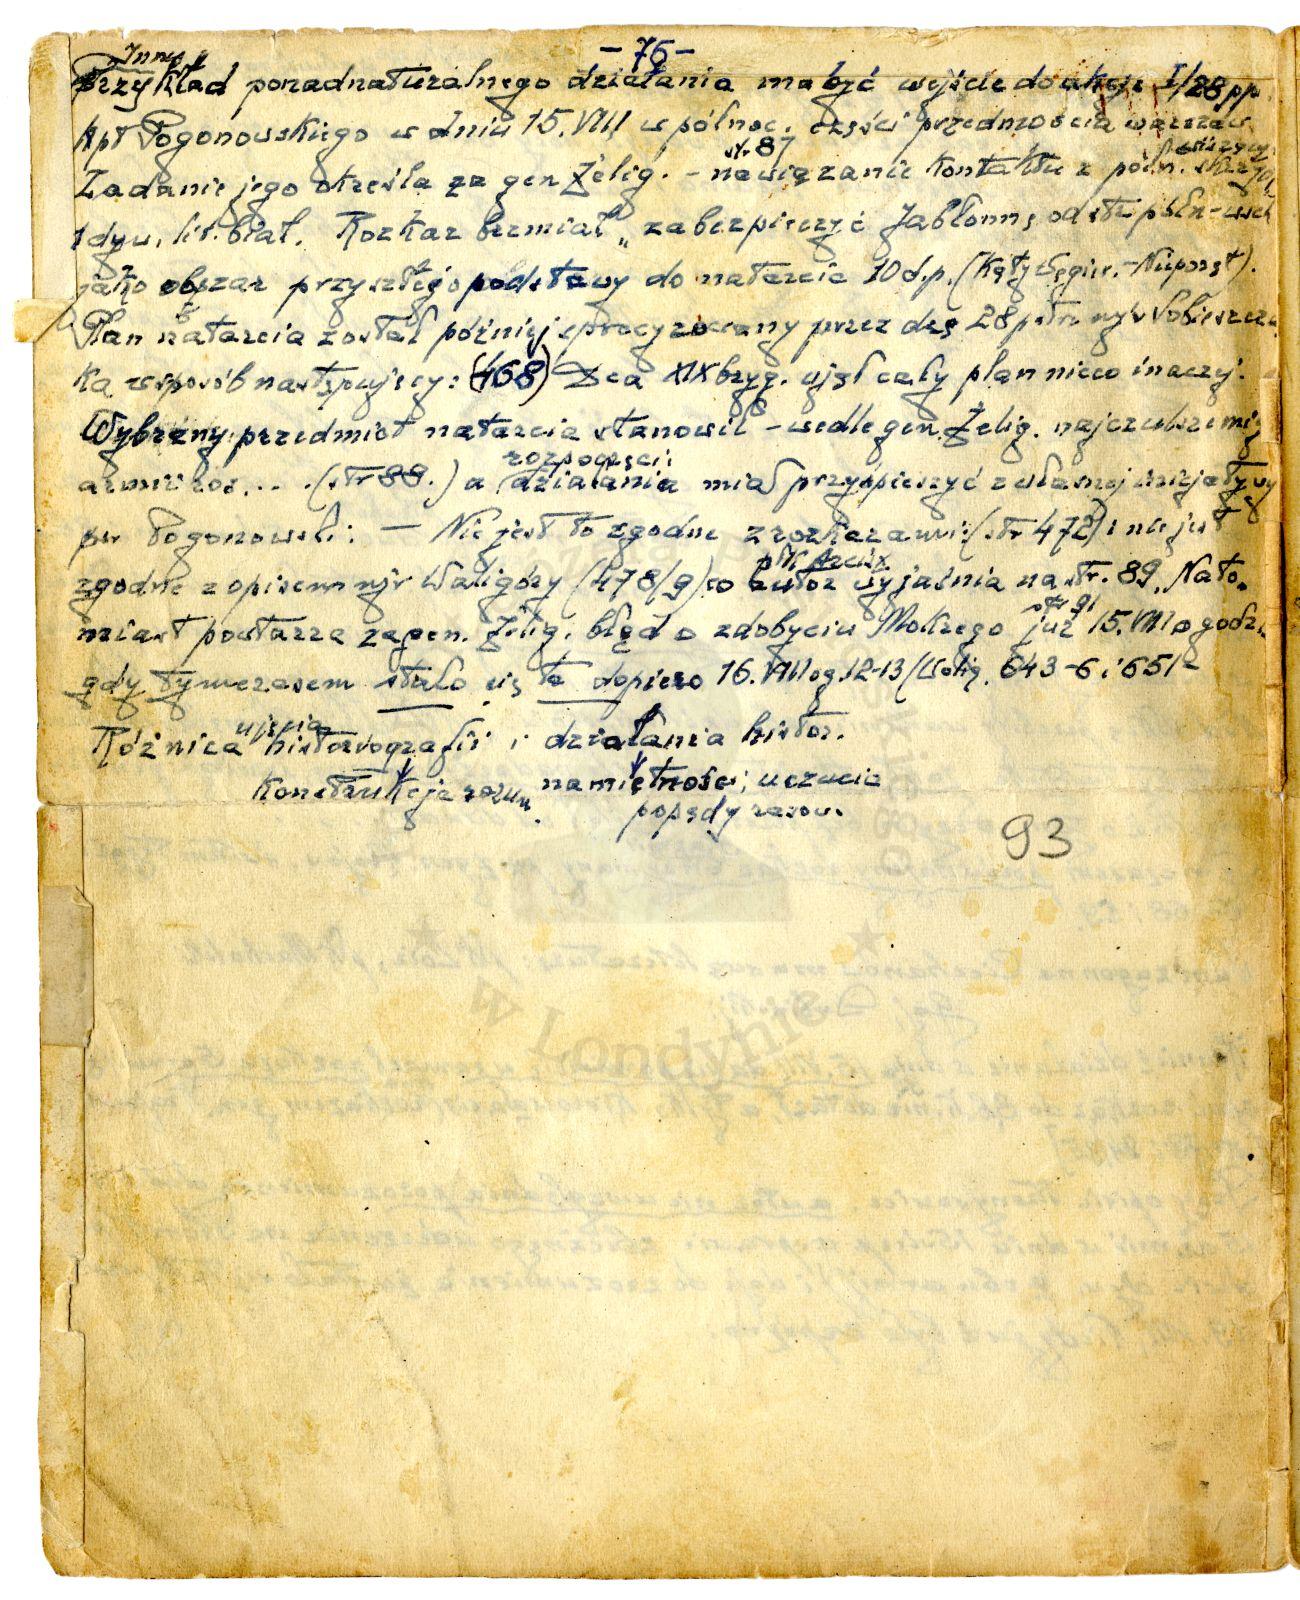 - 76 -
Inny
Przykład ponadnaturalnego działania ma być wejście do akcji I/28 pp.
kpt Pogonowskiego w dniu 15.VIII w północ. części przedmościa warszaw.
str 87
Zadanie jego określa za gen Żelig. - nawiązanie kontaktu z półn.
1 dyw. lit. biał. Rozkaz brzmiał „zabezpieczyć Jabłonnę od str. półn-wsch
jako obszar przyszłego podstawy do natarcia 10 d.p. (Kąty Węgier. - Nieporęt).
Plan natarcia został później sprecyzowany przez dcę 28 p str mjr Sobieszcza
ka w sposób następujący: (468) Dca XIX bryg. ujął cały plan nieco inaczej.
88
Wybrany przedmiot natarcia stanowił - wedle gen. Żelig. najczulsze miej
rozpoczęcie
armii ros... (str 88.) a działania miał przyśpieszyć z własnej inicjatywy
por Pogonowski: - Nie jest to zgodne z rozkazami (str 472) i nie jest
płk
zgodne z opisem mjr Waligóry (478/9) co autor wyjaśnia na str. 89. Nato-
str 91
miast powtarza za gen. Żelig. błąd o zdobyciu Mokrego już 15.VIII o godz.
gdy tymczasem stało się to dopiero 16.VIII og. 12-13 (Walig. 643-6 i 651-
ujęcia
Różnica historiografii i działania histor.
Konstrukcja rozum. namiętności, uczucia
popędy rasow.
93
w Londynie